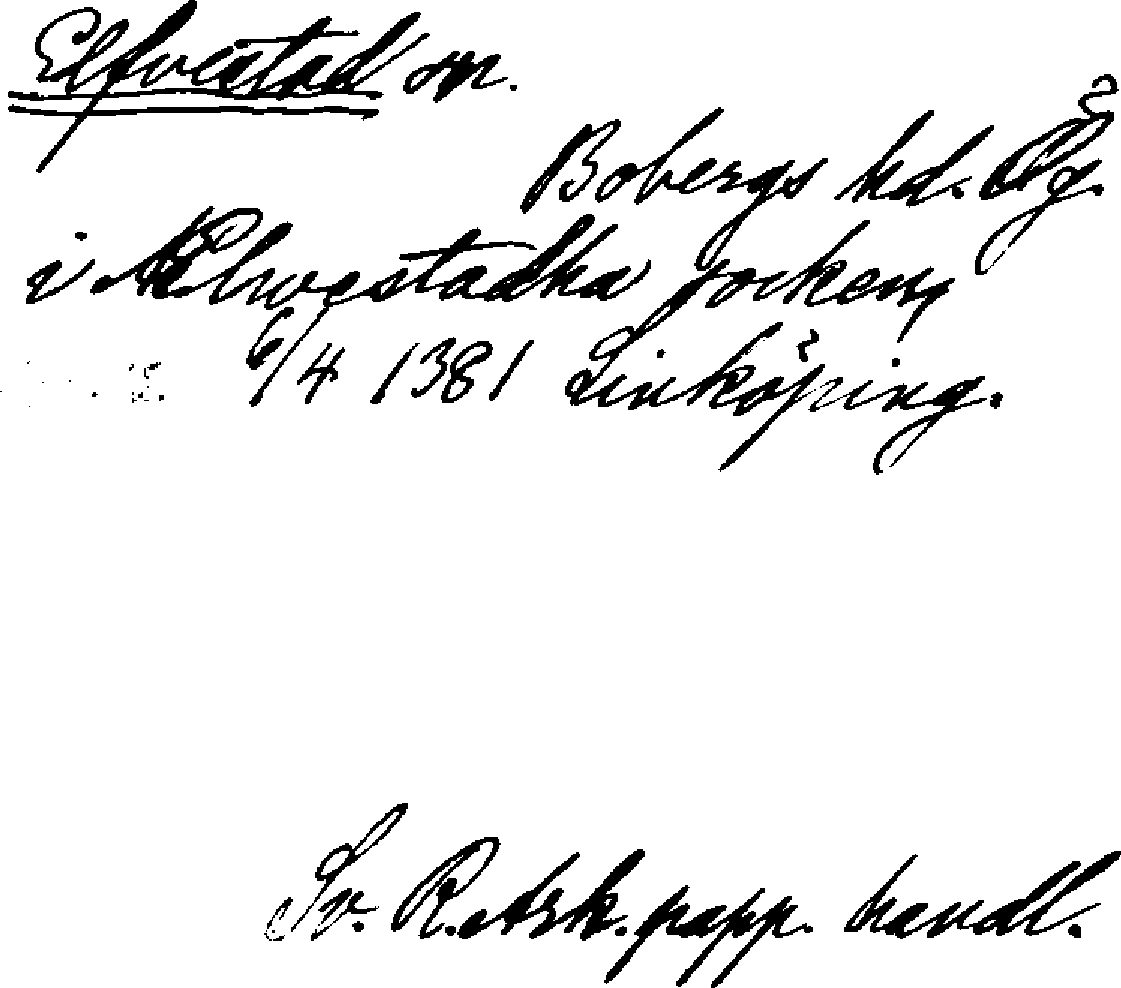 Elfvestad sn.
Bobergs hd. Ög.
i Elwestadha socken,
6/4 1381 Linköping.
Sv. R. Ark. papp. handl.